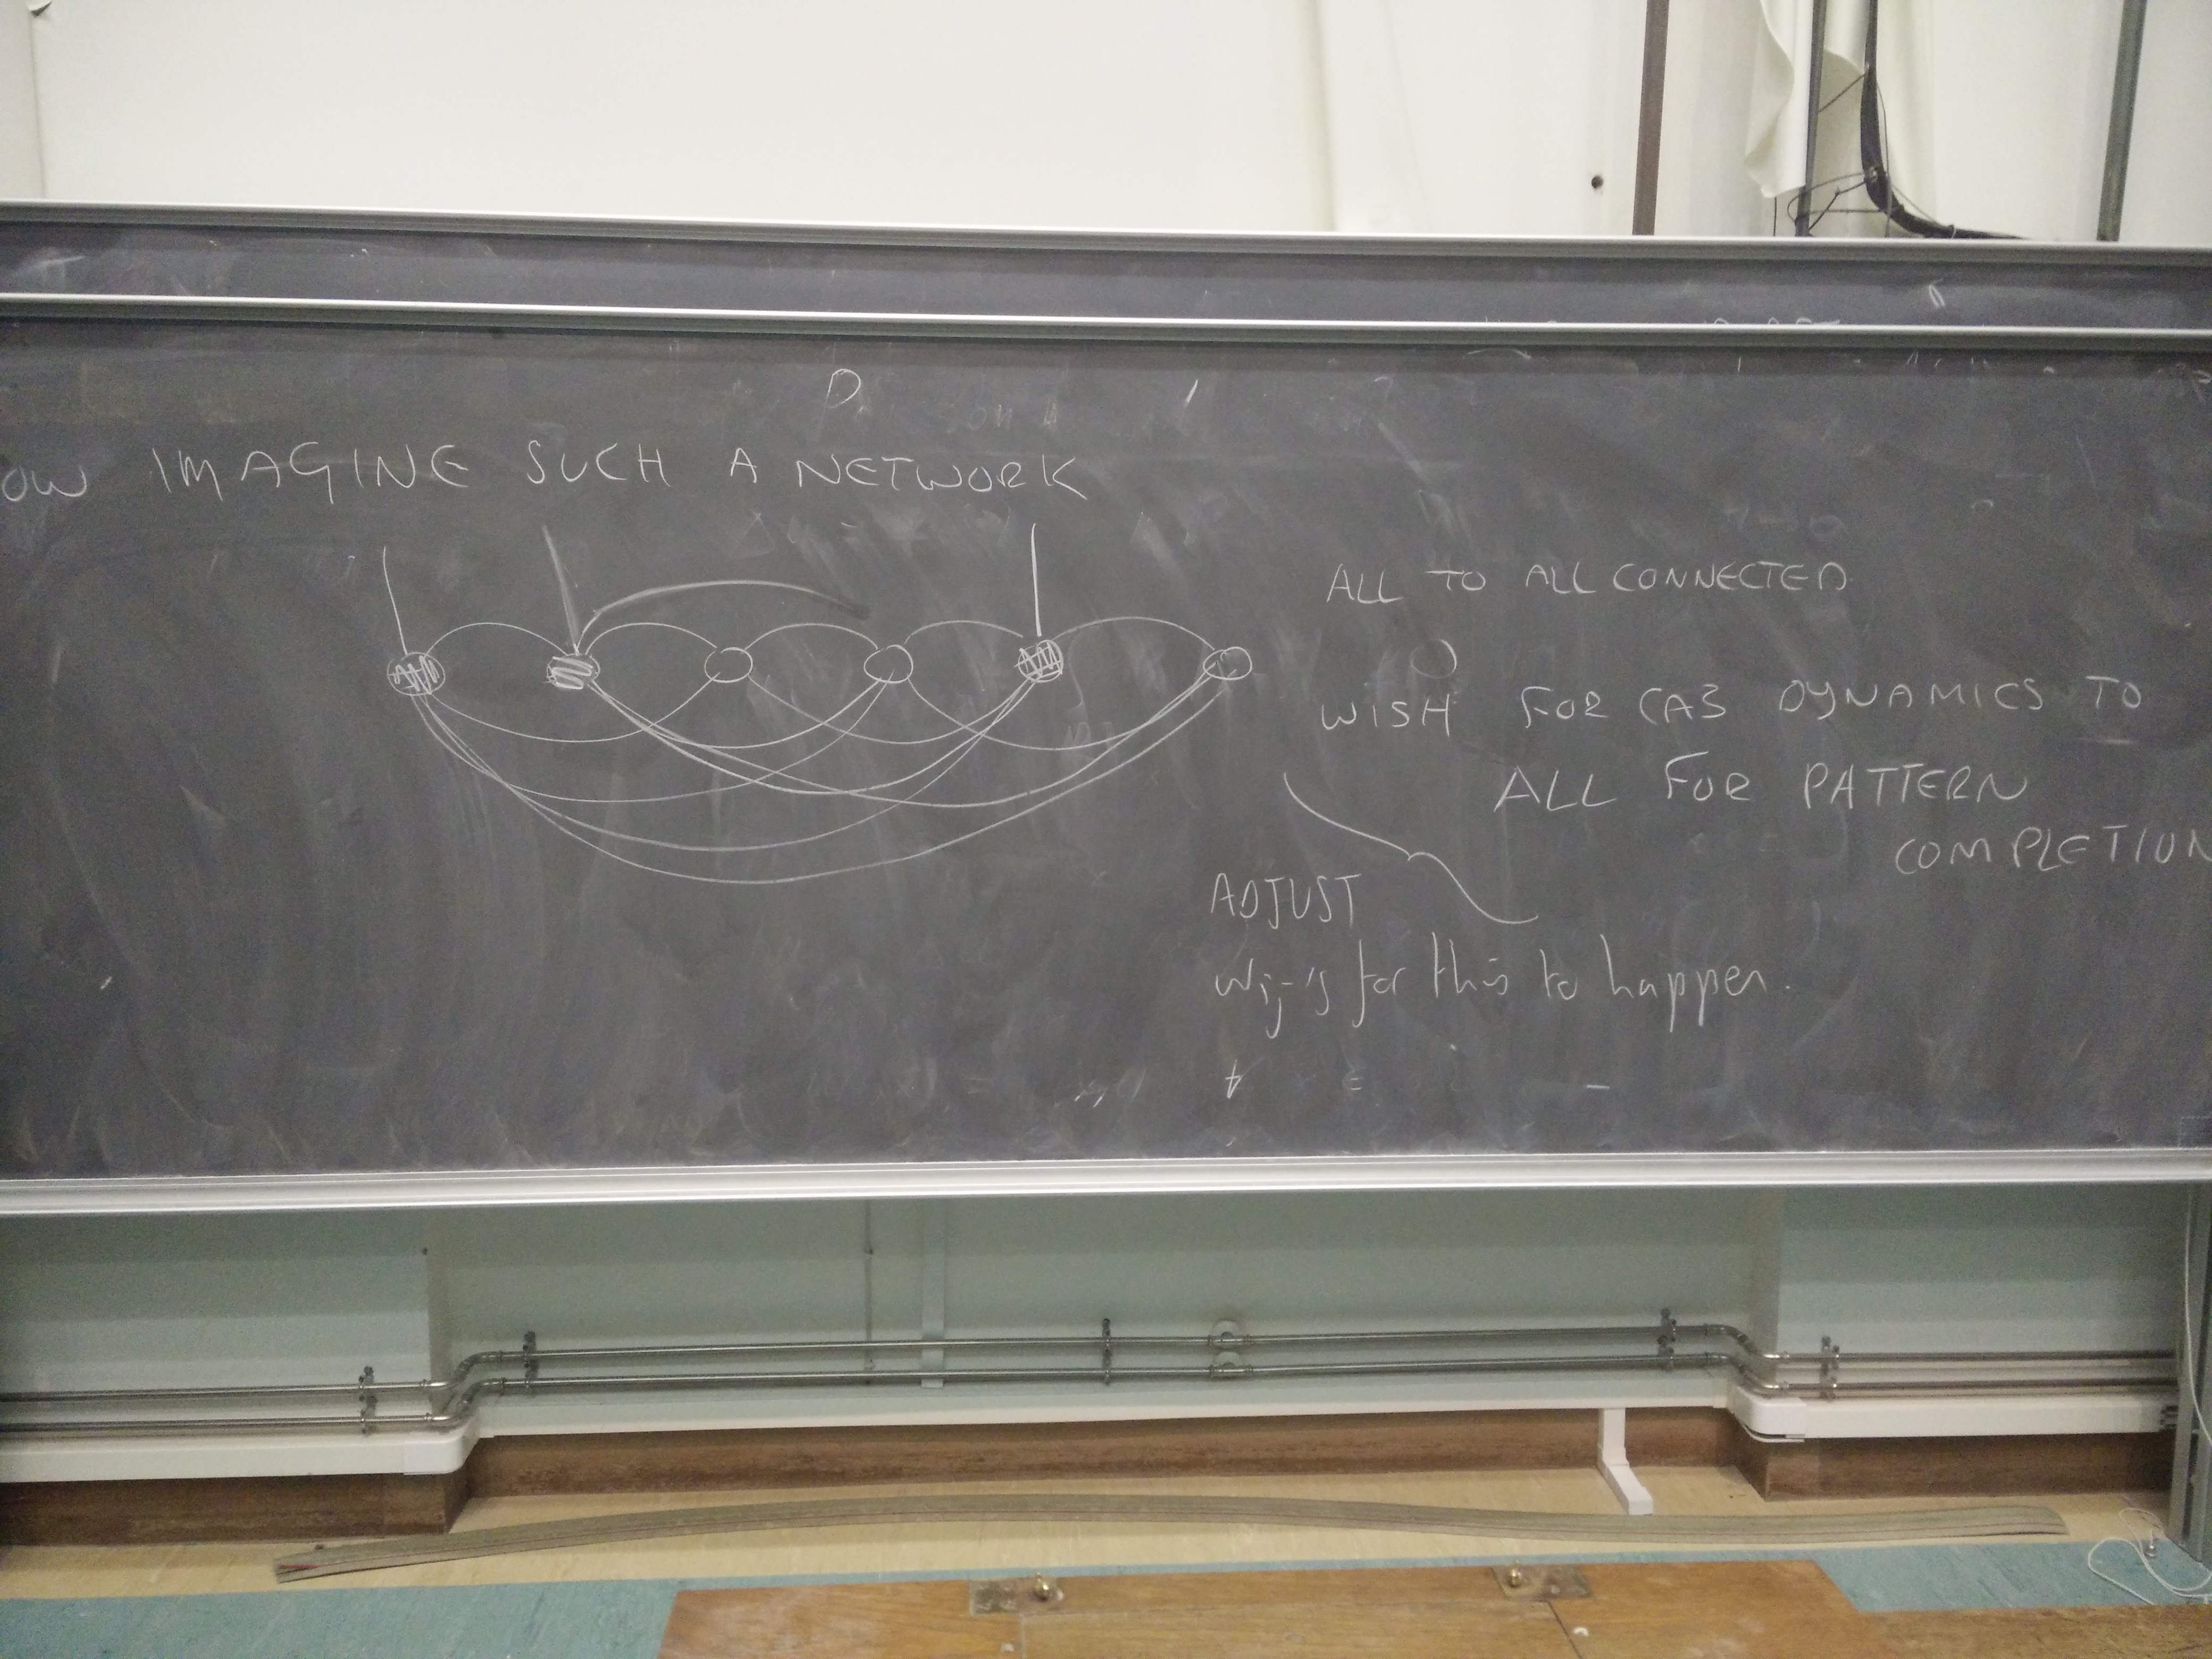 OW IMAGINE SUCH A NETWORK
ALL TO ALL CONNECTED
WISH FOR CA3 DYNAMICS TO
ALL FOR PATTERN
COMPLETION
ADJUST
wij's for this to happen.